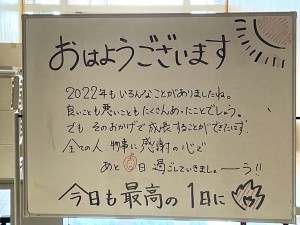 おはようございます
2022年もいろんなことがありましたね。
良いことも悪いこともたくさんあったことでしょう。
でも そのおかげで成長することができたはず。
全ての人 物事に感謝の心で
あと⑥日 過ごしていきましょーう!!
今日も最高の1日に